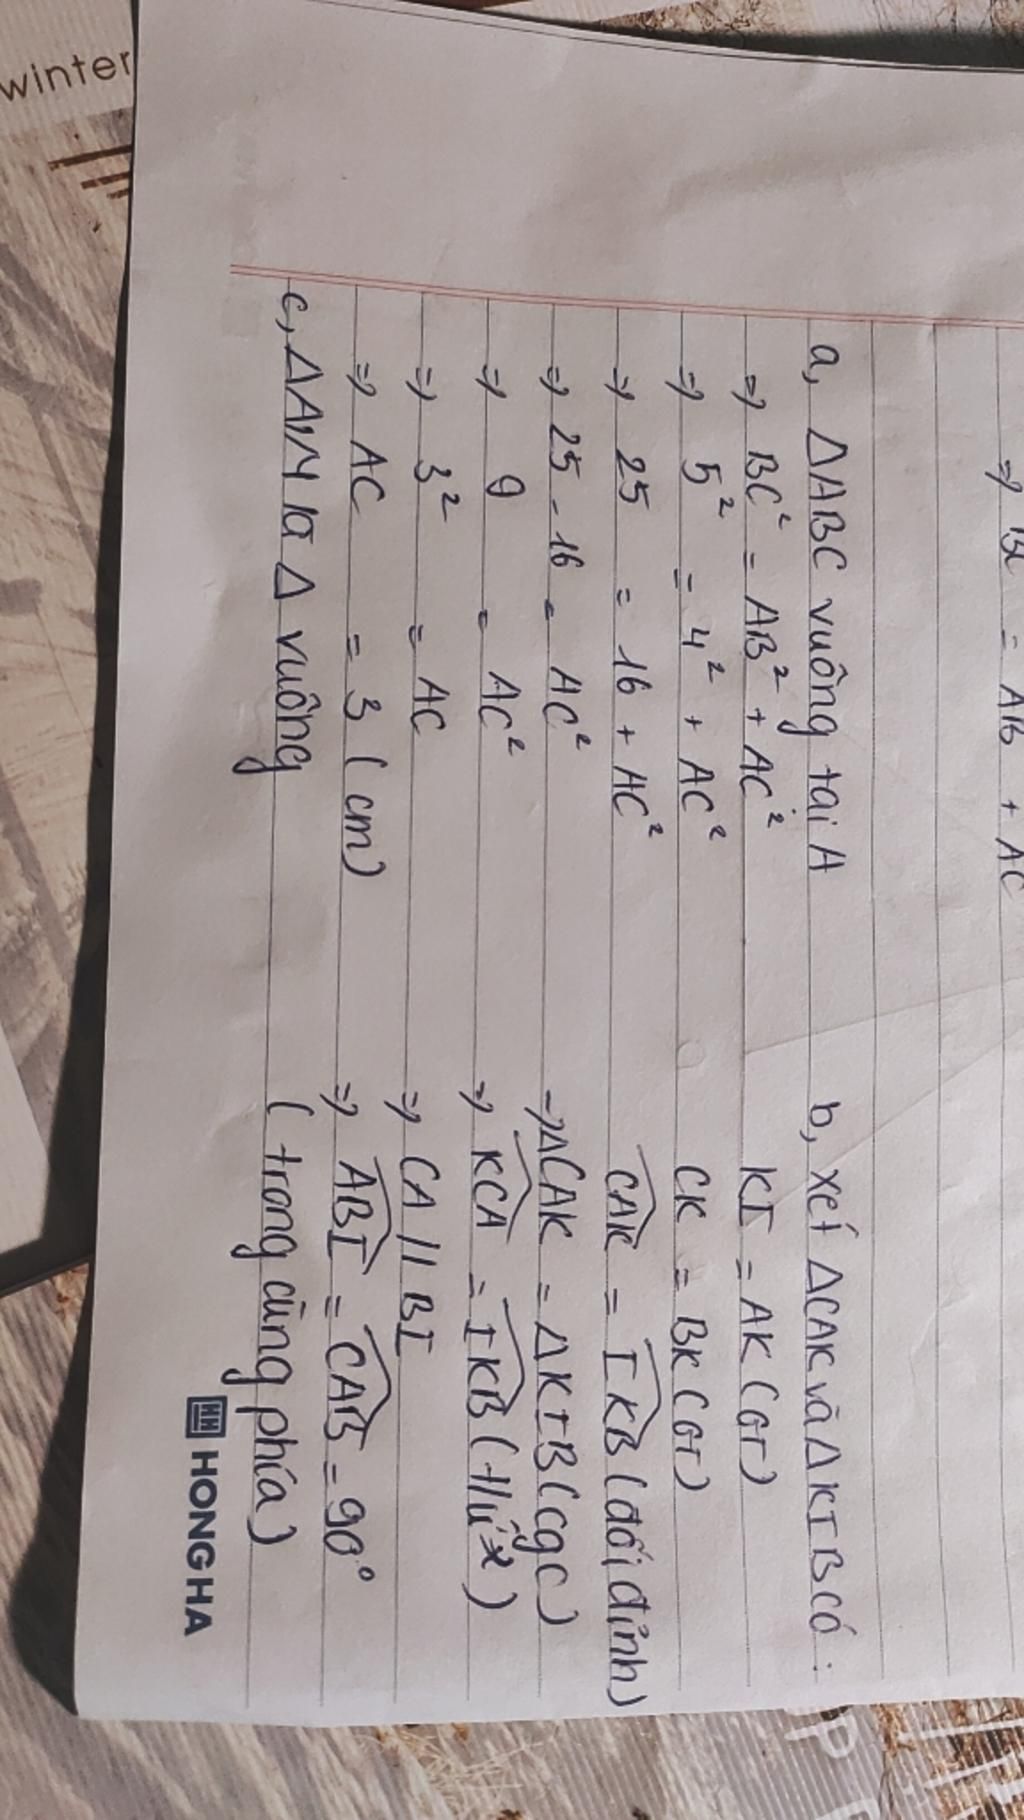 winter
⇒ BC = AB + AC
a, ΔABC vuông tại A
⇒ BC² = AB² + AC²
⇒ 5² = 4² + AC²
⇒ 25 = 16 + AC²
⇒ 25 - 16 = AC²
⇒ 9 = AC²
⇒ 3² = AC
⇒ AC = 3 (cm)
c, ΔAIM là Δ vuông
b, xét ΔCAK và ΔKIB có :
KI = AK (GT)
CK = BK (GT)
\widehat{CAK} = \widehat{IKB} (đối đỉnh)
→ ΔCAK = ΔKIB (cgc)
⇒ \widehat{KCA} = \widehat{IKB}
⇒ CA // BI
⇒ \widehat{ABI} = \widehat{CAB} = 90°
(trong cùng phía)
HONG HA